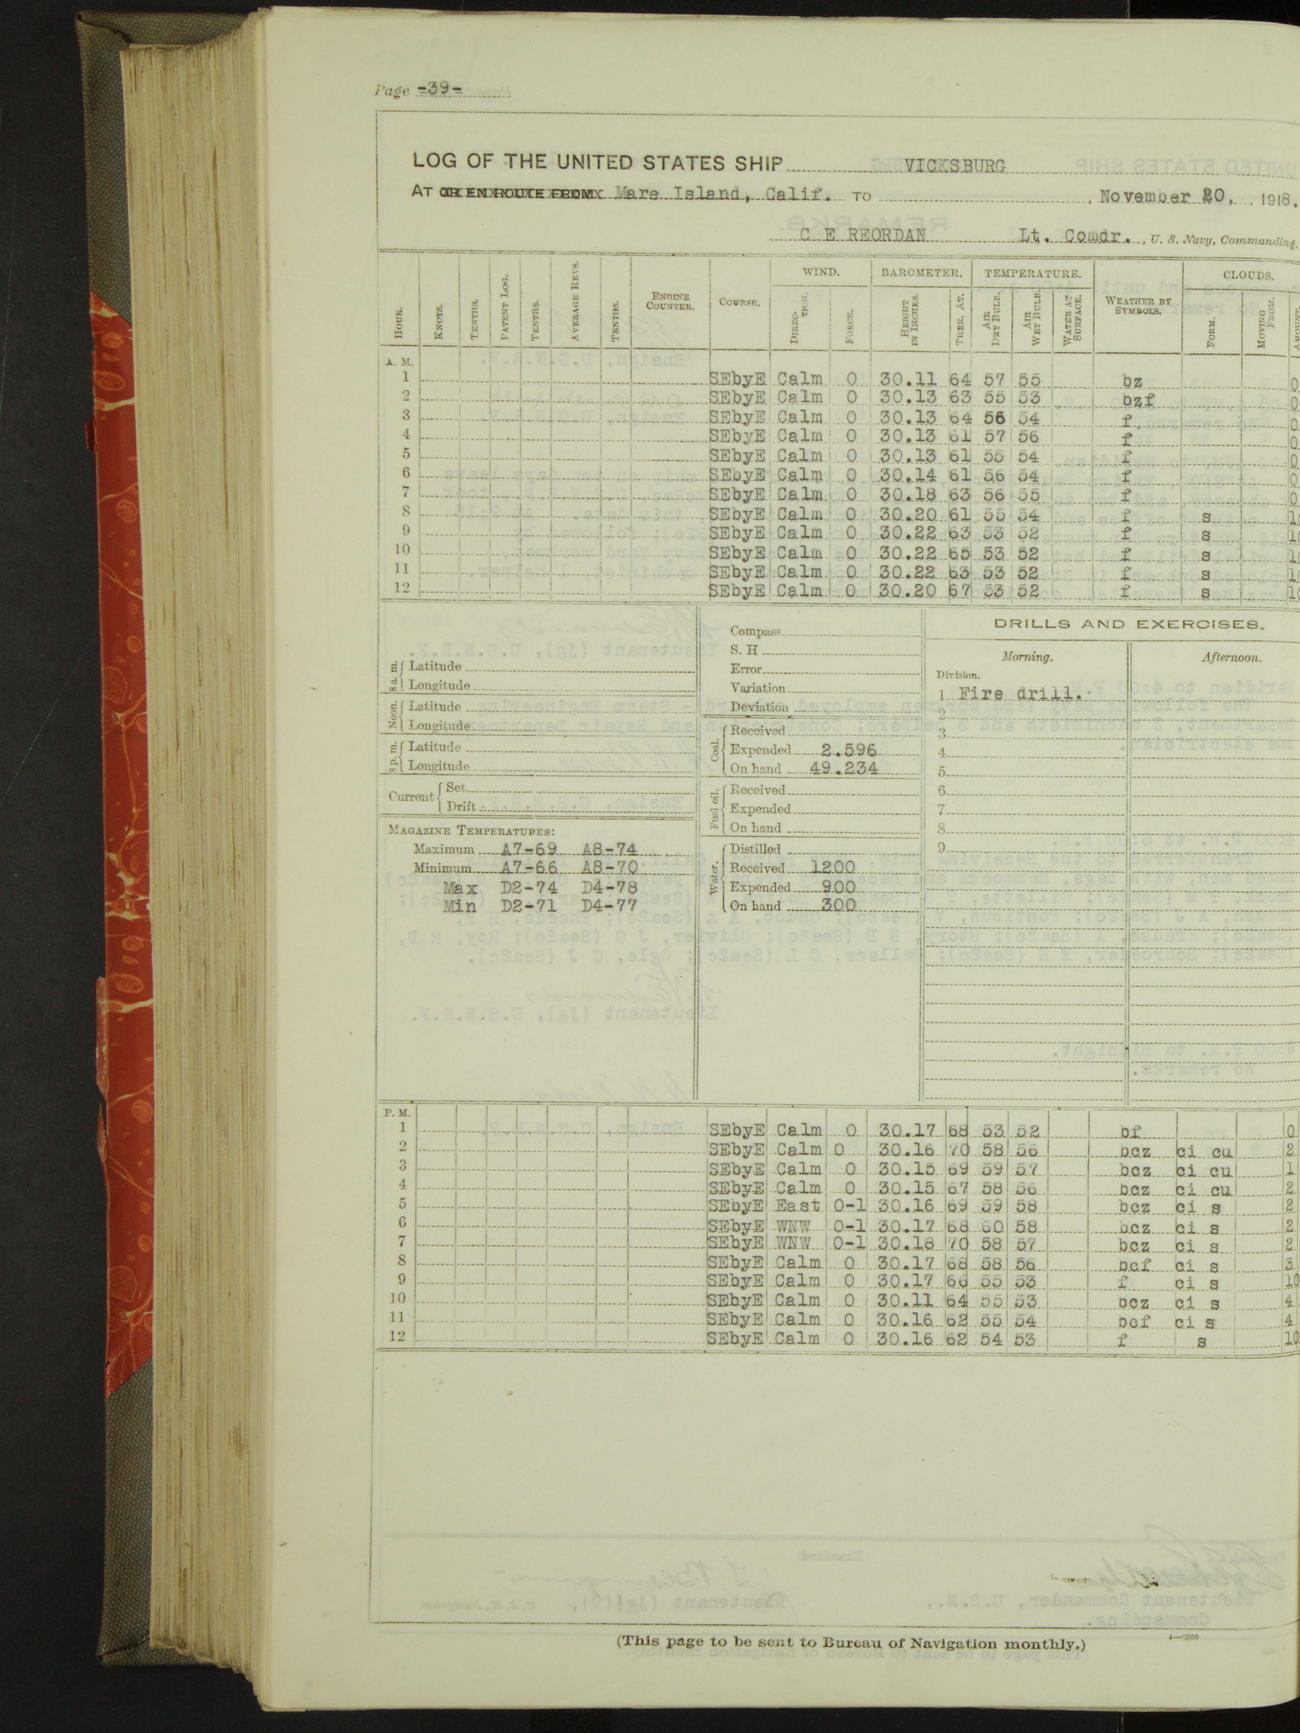 Page -39-
LOG OF THE UNITED STATES SHIP VICKSBURG
AT OR EN ROUTE FROM Mare Island, Calif. TO , November 20, , 1918.
C E REORDAN Lt. Comdr. , U. S. Navy, Commanding.
HOUR. KNOTS. TENTHS. PATENT LOG. TENTHS. AVERAGE REVS. TENTHS. ENGINE COUNTER. COURSE. WIND. DIRECTION. FORCE. BAROMETER. HEIGHT IN INCHES. THER. AT. TEMPERATURE. AIR DRY BULB. AIR WET BULB. WATER AT SURFACE. WEATHER BY SYMBOLS. CLOUDS. FORM. MOVING FROM. AMOUNT.
A. M.
1 SEbyE Calm 0 30.11 64 57 55 bz 0
2 SEbyE Calm 0 30.13 63 55 53 bzf 0
3 SEbyE Calm 0 30.13 64 56 54 f 0
4 SEbyE Calm 0 30.13 61 57 56 f 0
5 SEbyE Calm 0 30.13 61 55 54 f 0
6 SEbyE Calm 0 30.14 61 56 54 f 0
7 SEbyE Calm 0 30.18 63 56 55 f 0
8 SEbyE Calm 0 30.20 61 55 54 f s 10
9 SEbyE Calm 0 30.22 63 53 52 f s 10
10 SEbyE Calm 0 30.22 65 53 52 f s 10
11 SEbyE Calm 0 30.22 63 53 52 f s 10
12 SEbyE Calm 0 30.20 67 53 52 f s 10
8 a. m. Latitude
Longitude
Noon. Latitude
Longitude
8 p. m. Latitude
Longitude
Current Set
Drift
MAGAZINE TEMPERATURES:
Maximum A7-69 A8-74
Minimum A7-66 A8-70
Max D2-74 D4-78
Min D2-71 D4-77
Compass
S. H
Error
Variation
Deviation
Coal. Received
Expended 2.596
On hand 49.234
Fuel oil. Received
Expended
On hand
Water. Distilled
Received 1200
Expended 900
On hand 300
DRILLS AND EXERCISES.
Morning. Afternoon.
Division.
1 Fire drill.
2
3
4
5
6
7
8
9
P. M.
1 SEbyE Calm 0 30.17 68 53 52 bf 0
2 SEbyE Calm 0 30.16 70 58 56 bcz ci cu 2
3 SEbyE Calm 0 30.15 69 59 57 bcz ci cu 1
4 SEbyE Calm 0 30.15 67 58 56 bcz ci cu 2
5 SEbyE East 0-1 30.16 69 59 58 bcz ci s 2
6 SEbyE WNW 0-1 30.17 68 60 58 bcz ci s 2
7 SEbyE WNW 0-1 30.18 70 58 57 bcz ci s 2
8 SEbyE Calm 0 30.17 68 58 56 bcf ci s 3
9 SEbyE Calm 0 30.17 66 55 53 f ci s 10
10 SEbyE Calm 0 30.11 64 55 53 bcz ci s 4
11 SEbyE Calm 0 30.16 62 55 54 bcf ci s 4
12 SEbyE Calm 0 30.16 62 54 53 f s 10
(This page to be sent to Bureau of Navigation monthly.)